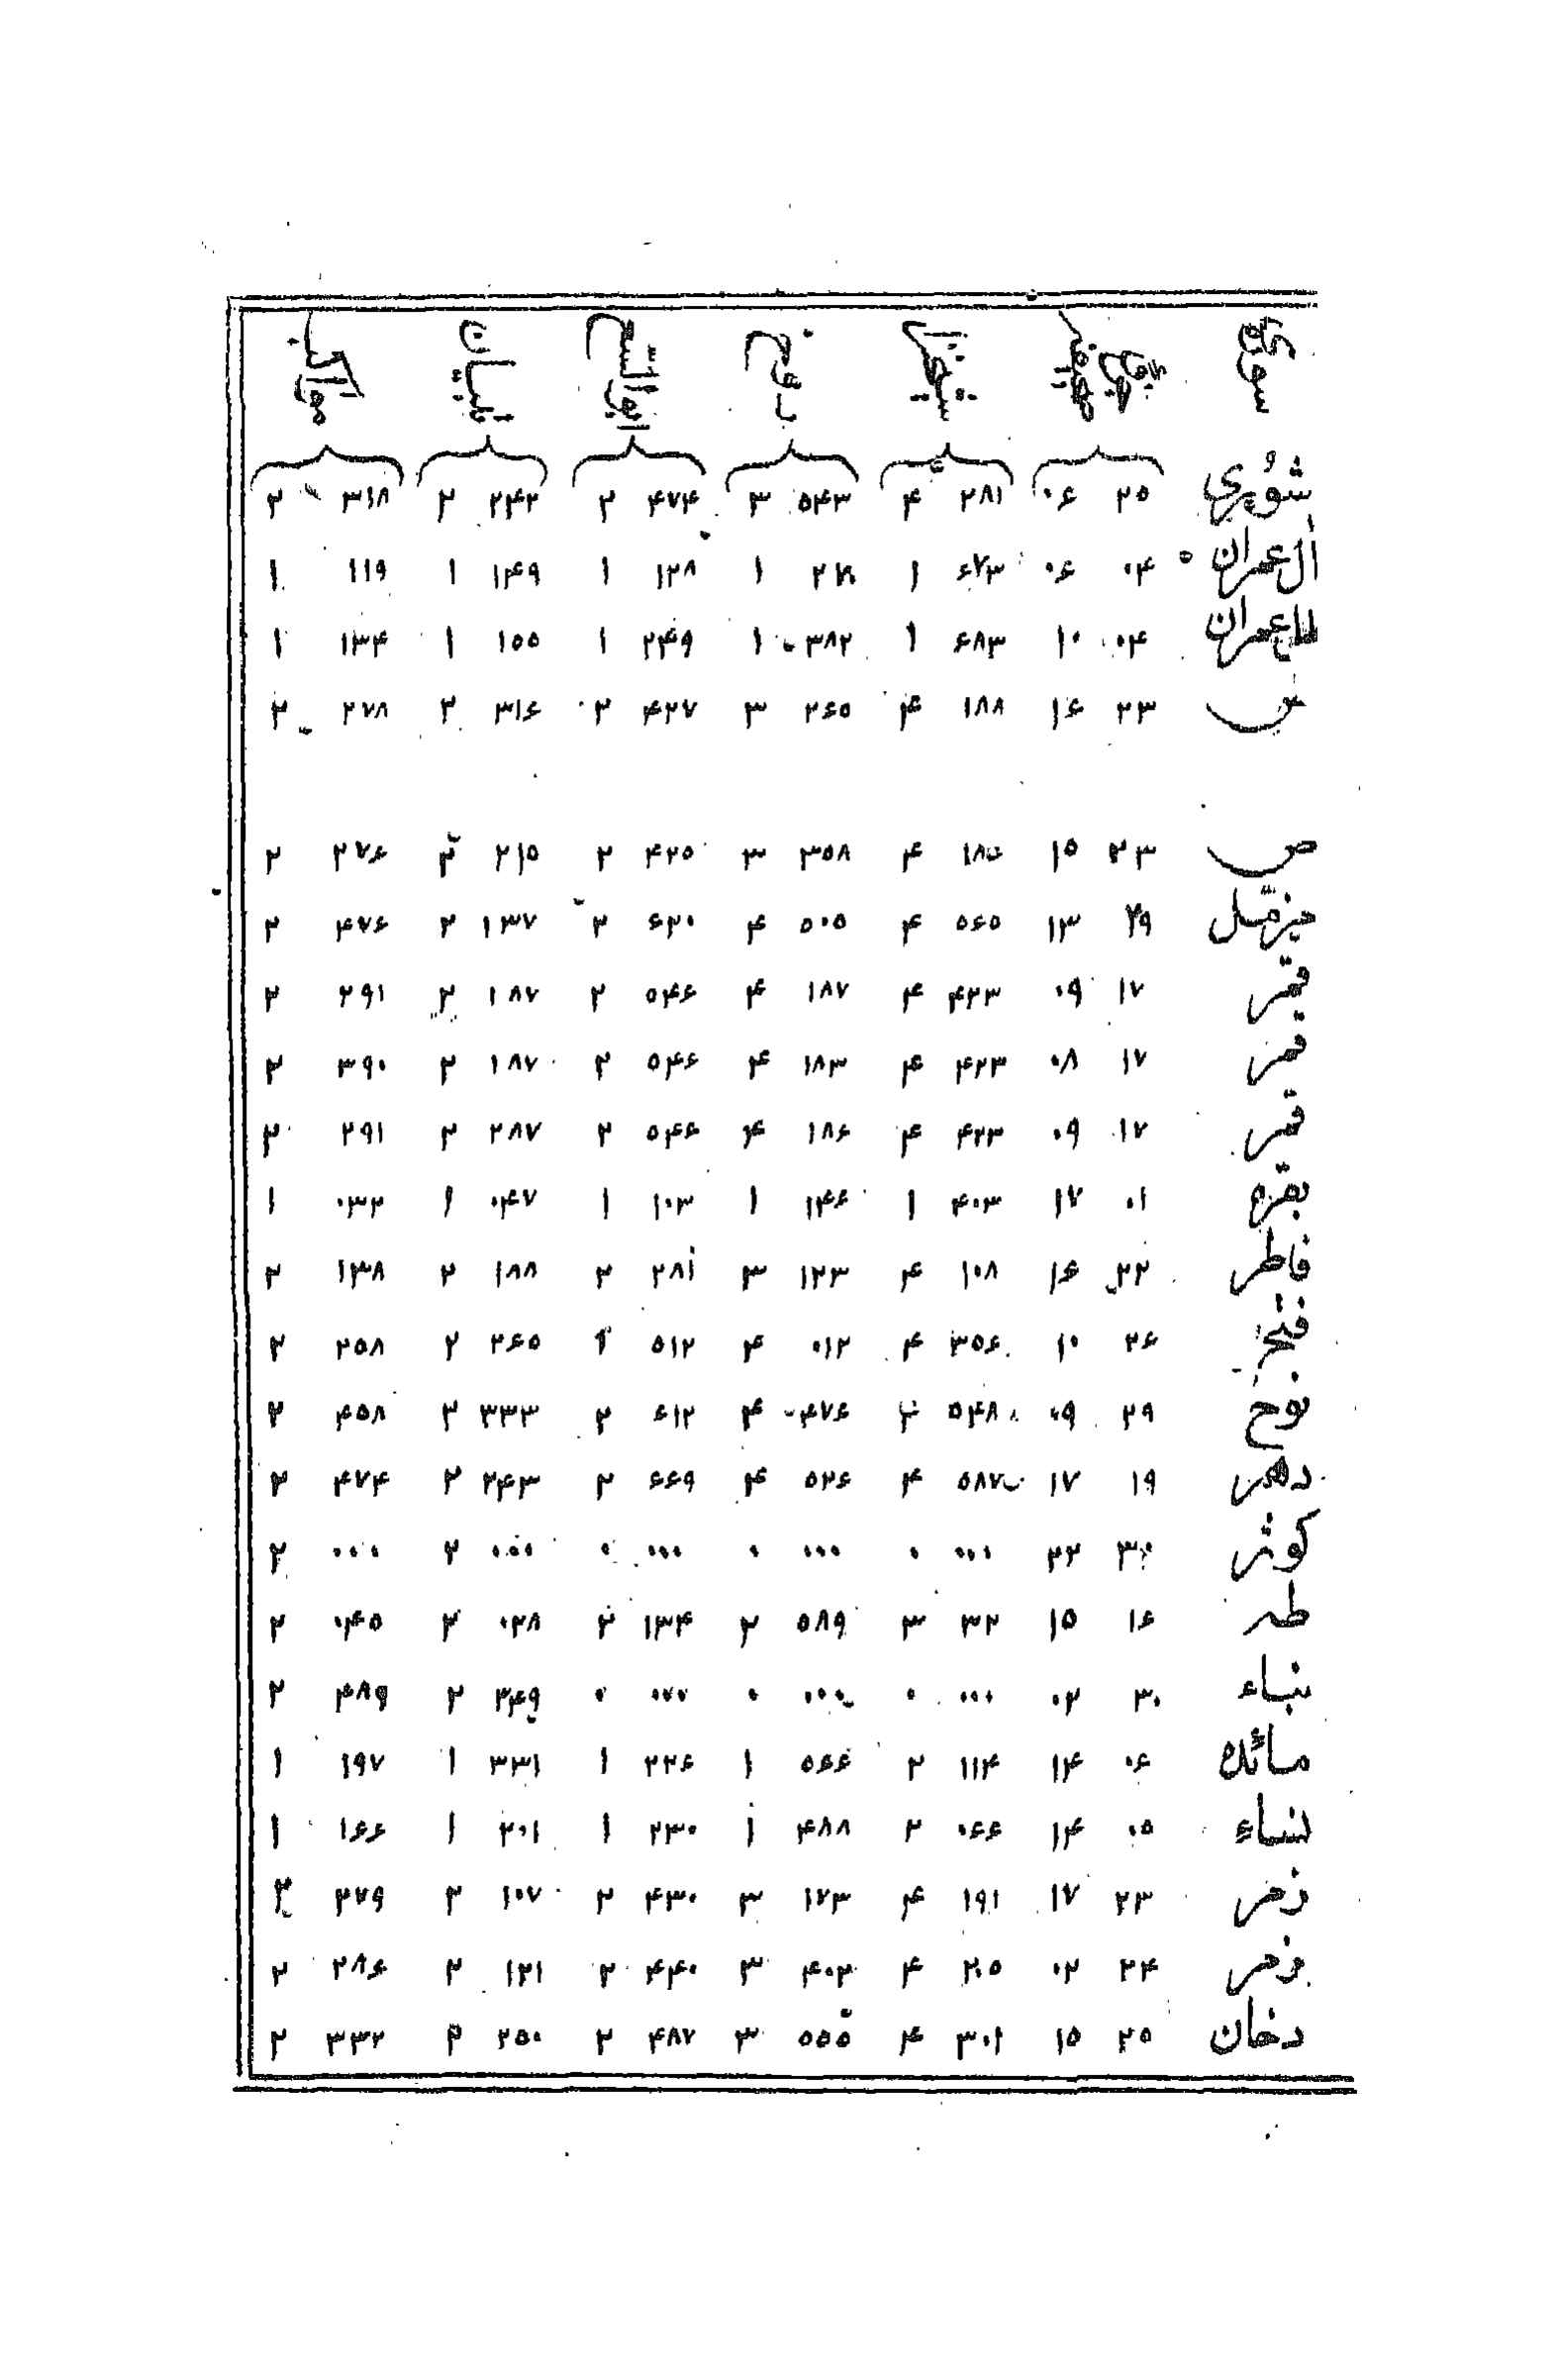 شوُری ۲۵ ۰۶ ۲۸۱ ۴ ۵۴۳ ۳ ۴۷۴ ۲ ۲۴۲ ۲ ۳۱۸ ۲
آل‌عمران ۰۴ ۰۶ ۶۷۳ ۱ ۱ ۱۲۸ ۱ ۱۴۹ ۱ ۱۱۹ ۱
عمران ۰۴ ۱۰ ۶۸۳ ۱ ۳۸۲ ۱ ۲۴۹ ۱ ۱۵۵ ۱ ۱۳۴ ۱
ص ۲۳ ۱۶ ۱۸۸ ۴ ۲۶۵ ۳ ۴۲۷ ۲ ۳۱۶ ۲ ۲۷۸ ۲
ص ۲۳ ۱۵ ۴ ۳۵۸ ۳ ۴۲۵ ۲ ۲۱۵ ۲ ۲۷۶ ۲
مزمّل ۲۹ ۱۳ ۵۶۵ ۴ ۵۰۵ ۴ ۶۲۰ ۲ ۱۳۷ ۲ ۴۷۶ ۲
قمر ۱۷ ۰۹ ۴۲۳ ۴ ۱۸۷ ۴ ۵۴۶ ۲ ۱۸۷ ۲ ۲۹۱ ۲
قمر ۱۷ ۰۸ ۴۲۳ ۴ ۱۸۳ ۴ ۵۴۶ ۲ ۱۸۷ ۲ ۳۹۰ ۲
قمر ۱۷ ۰۹ ۴۲۳ ۴ ۱۸۶ ۴ ۵۴۶ ۲ ۲۸۷ ۲ ۲۹۱ ۲
بقره ۰۱ ۱۷ ۴۰۳ ۱ ۱۴۶ ۱ ۱۰۳ ۱ ۰۴۷ ۱ ۰۳۲ ۱
فاطر ۲۲ ۱۶ ۱۰۸ ۴ ۱۲۳ ۳ ۲۸۱ ۲ ۱۸۸ ۲ ۱۳۸ ۲
فتح ۲۶ ۱۰ ۳۵۶ ۴ ۰۱۲ ۴ ۵۱۲ ۲۶۵ ۲ ۲۵۸ ۲
نوح ۲۹ ۰۹ ۵۴۸ ۴ ۴۷۶ ۴ ۶۱۲ ۲ ۳۳۳ ۲ ۴۵۸ ۲
دهر ۱۹ ۱۷ ۵۸۷ ۴ ۵۲۶ ۴ ۶۶۹ ۲ ۲۴۳ ۲ ۴۷۴ ۲
کوثر ۳۰ ۲۲ ۰۰۰ ۰ ۰۰۰ ۰ ۰۰۰ ۰ ۰۰۰ ۲ ۰۰۰ ۲
طه ۱۶ ۱۵ ۳۲ ۳ ۵۸۹ ۲ ۱۳۴ ۲ ۰۲۸ ۲ ۰۴۵ ۲
نباء ۳۰ ۰۲ ۰۰۰ ۰ ۰۰۰ ۰ ۰۰۰ ۰ ۳۴۹ ۲ ۴۸۹ ۲
مائده ۰۶ ۱۴ ۱۱۴ ۲ ۵۶۶ ۱ ۲۲۶ ۱ ۳۳۱ ۱ ۱۹۷ ۱
نساء ۰۵ ۱۴ ۰۶۶ ۲ ۴۸۸ ۱ ۲۳۰ ۱ ۲۰۱ ۱ ۱۶۶ ۱
زمر ۲۳ ۱۷ ۱۹۱ ۴ ۱۷۳ ۳ ۴۳۰ ۲ ۱۰۷ ۲ ۲۷۹ ۲
زمر ۲۴ ۰۲ ۲۰۵ ۴ ۴۰۲ ۳ ۴۴۰ ۲ ۱۲۱ ۲ ۲۸۶ ۲
دخان ۲۵ ۱۵ ۳۰۱ ۴ ۵۵۵ ۳ ۴۸۷ ۲ ۲۵۰ ۲ ۳۳۲ ۲